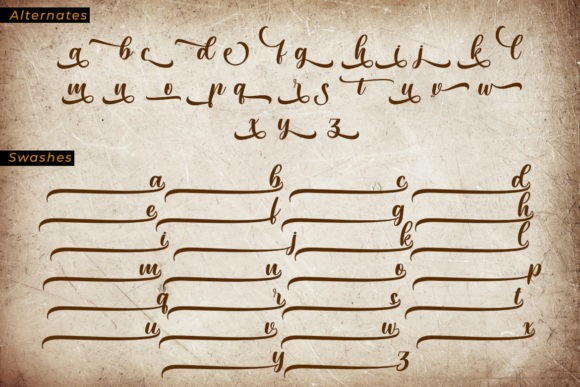 Alternates
a b c d e f g h i j k l
m n o p q r s t u v w
x y z
Swashes
a b c d
e f g h
i j k l
m n o p
q r s t
u v w x
y z